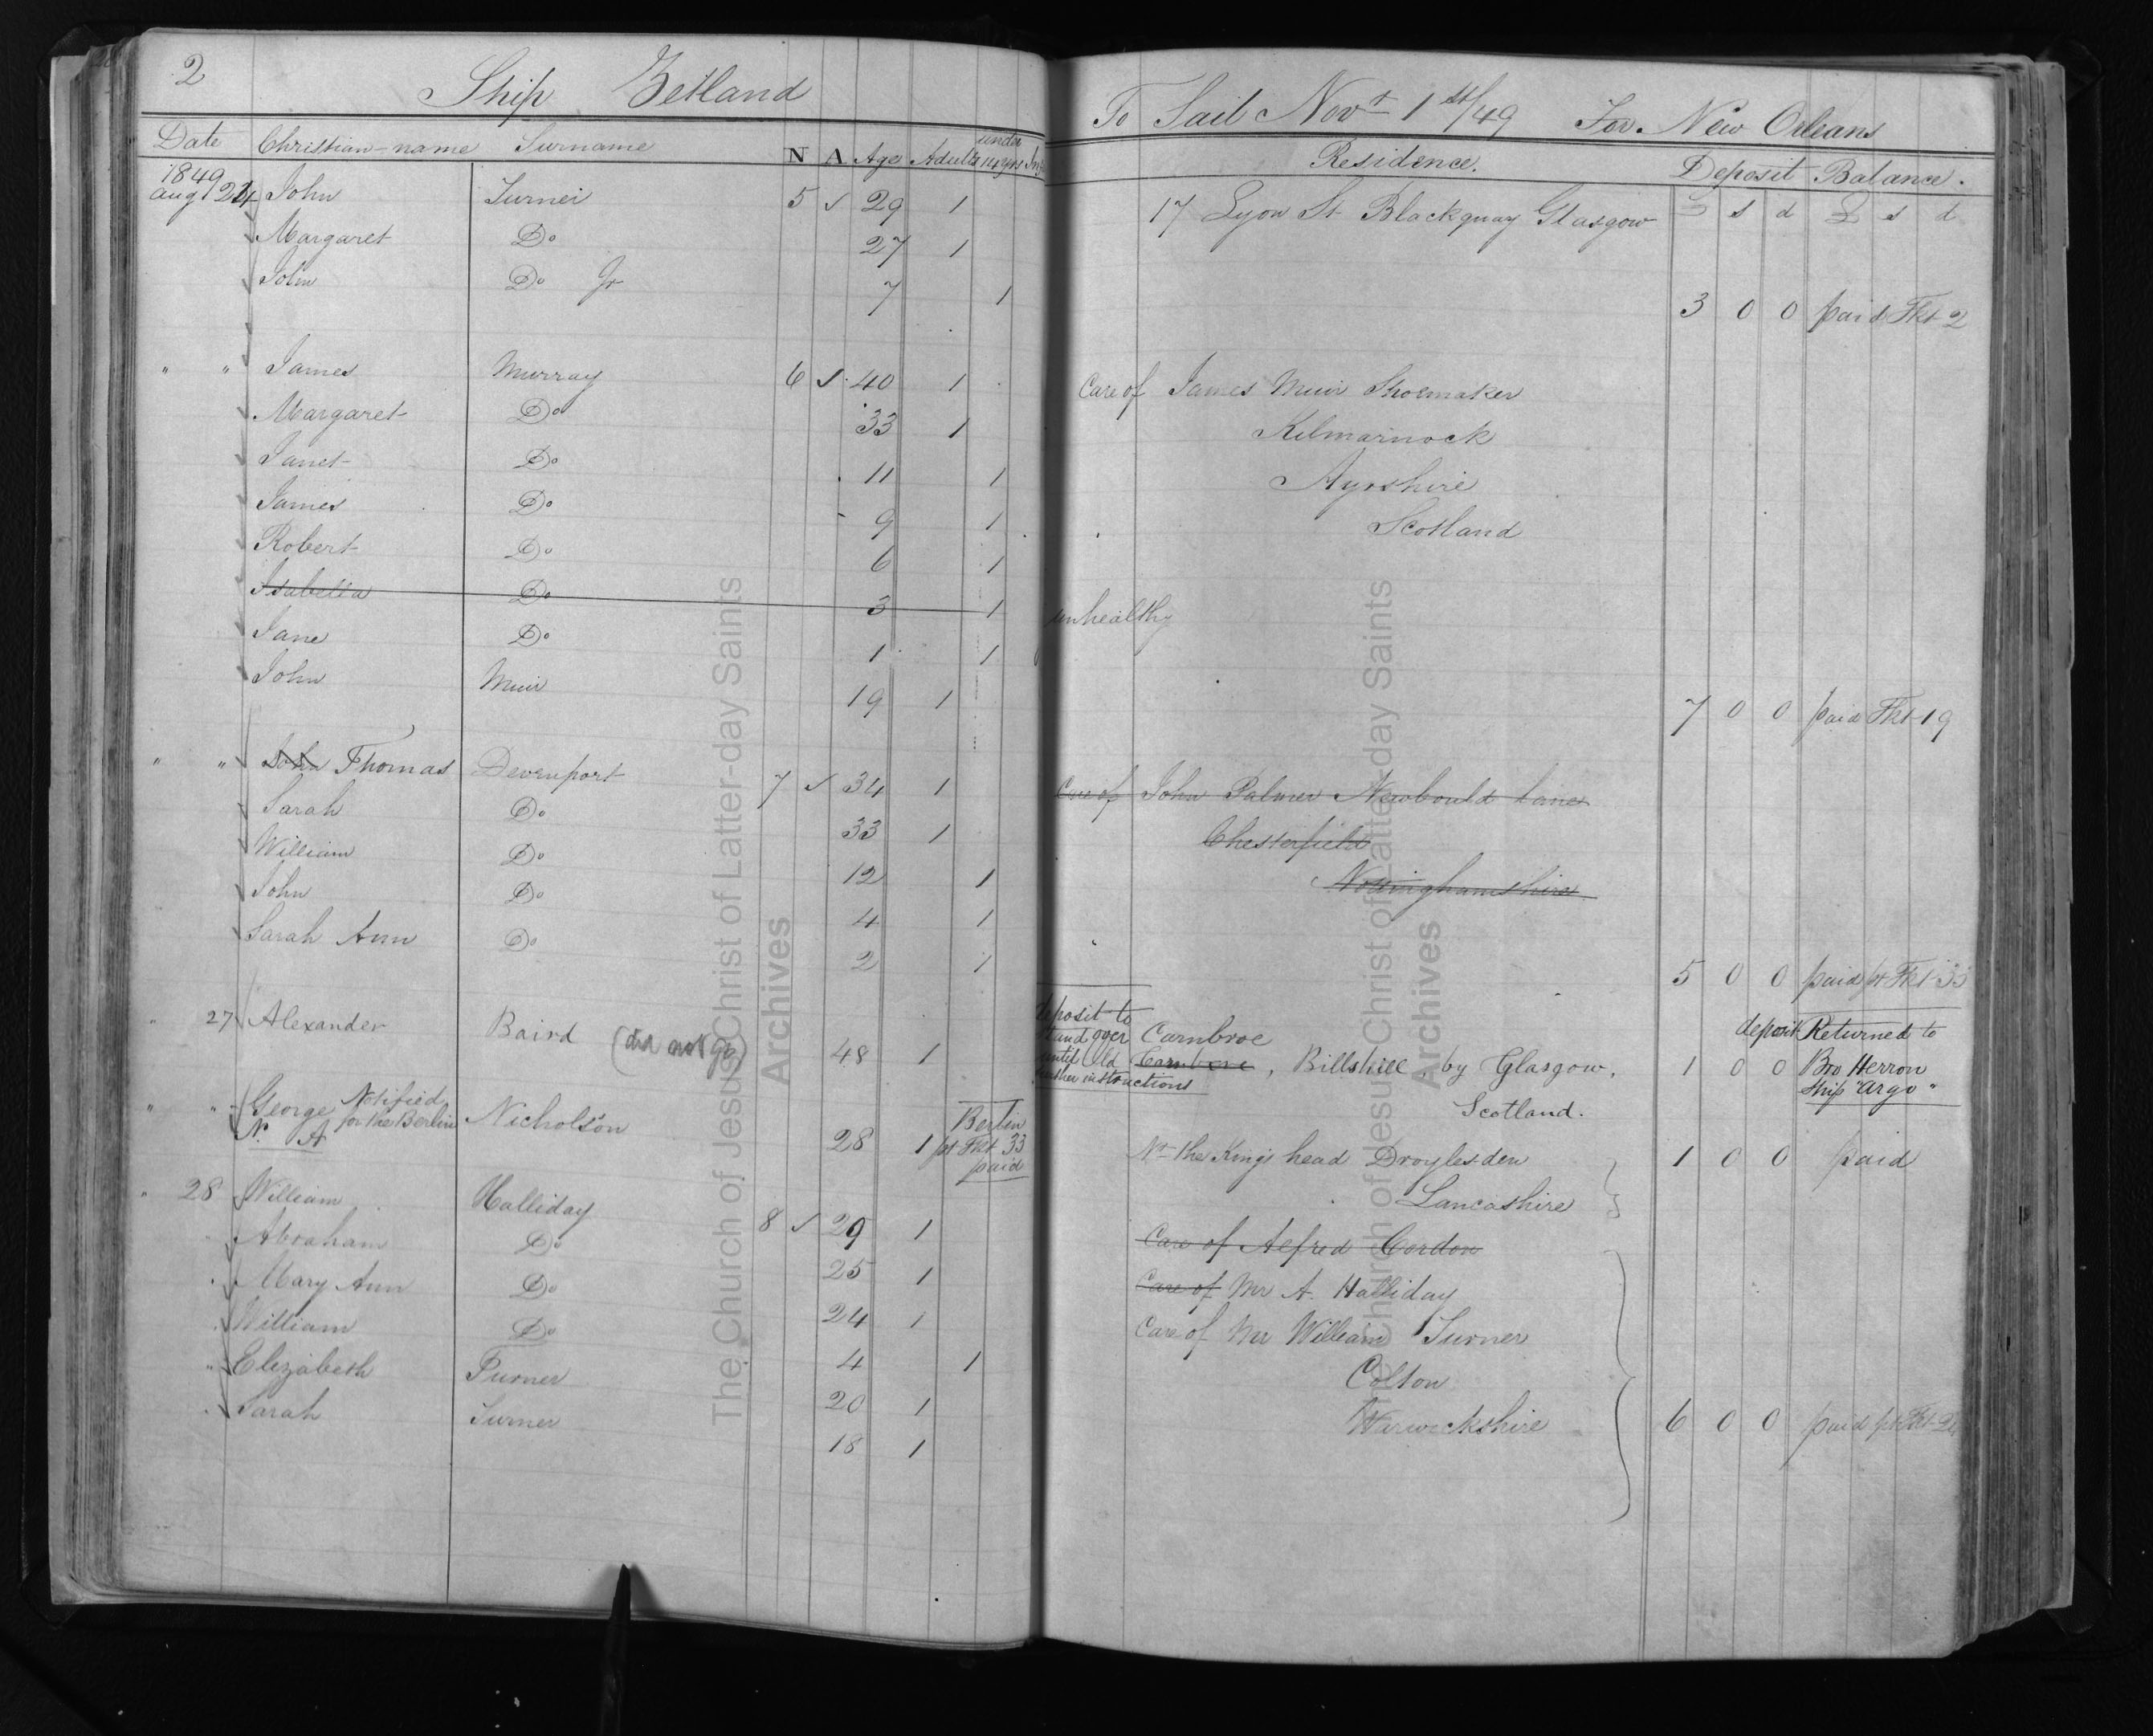 2 Ship Zetland To Sail Novr 1st/49 For New Orleans
Date Christian-name Surname N A Age Adults under Residence. Deposit Balance.
£ s d £ s d
1849
Augt 24 John Turner 5 ✓ 29 1 17 Lyon St Blackquay Glasgow
Margaret Do 27 1
John Do Jr 7 1 3 0 0 paid Tkt 2
" " James Murray 6 ✓ 40 1 Care of James Muir Shoemaker
Margaret Do 33 1 Kilmarnock
Janet Do 11 1 Ayrshire
James Do 9 1 Scotland
Robert Do 6 1
Isabella Do 3 1 unhealthy
Jane Do 1 1
John Muir 19 1 7 0 0 paid Tkt 19
" " John Thomas Devenport 7 ✓ 34 1 Care of John Palmer Newbould Lane
Sarah Do 33 1 Chesterfield
William Do 12 1 Nottinghamshire
John Do 4 1
Sarah Ann Do 2 1 5 0 0 paid pr Tkt 33
" 27 Alexander Baird (did not go) 48 1 deposit to stand over until further instructions Carnbroe
Old Carnbroe, Billshill, by Glasgow, Scotland. 1 0 0 deposit Returned to Bro Herron Ship "Argo"
" " George Notified for the Berlin Nicholson 28 1 Berlin pr Tkt 33 paid Nr the Kings head Droylesden 1 0 0 paid
N. A Lancashire
" 28 William Halliday 8 ✓ 29 1 Care of Alfred Cordon
Abraham Do 25 1 Care of Mr A. Halliday
Mary Ann Do 24 1 Care of Mr William Turner
William Do 4 1 Colton
" Elizabeth Turner 20 1 Warwickshire 6 0 0 paid pr Tkt
Sarah Turner 18 1
The Church of Jesus Christ of Latter-day Saints
Archives
The Church of Jesus Christ of Latter-day Saints
Archives